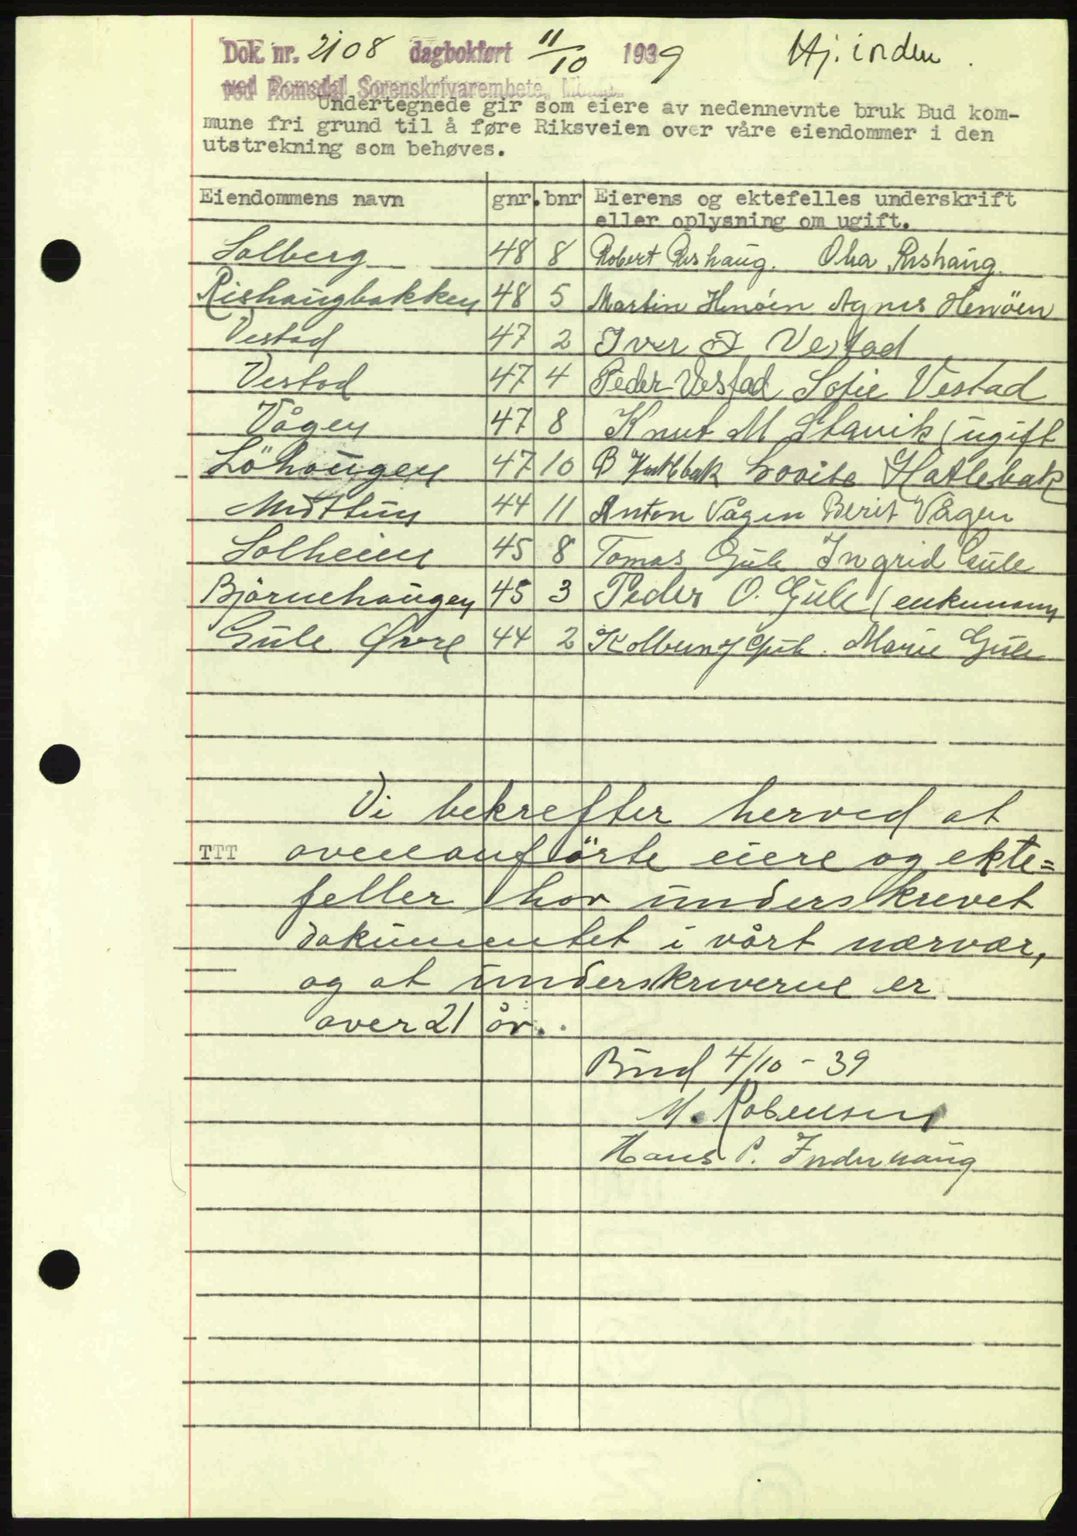 Dok. nr. 2108 dagbokført 11/10 1939
ved Romsdal Sorenskrivarembete,
Undertegnede gir som eiere av nedennevnte bruk Bud kom-
mune fri grund til å føre Riksveien over våre eiendommer i den
utstrekning som behøves.
Eiendommens navn gnr. bnr Eierens og ektefelles underskrift
eller oplysning om ugift.
Solberg 48 8 Robert Rishaug. Olea Rishaug.
Rishaugbakken 48 5 Martin Henöen Agnes Henöen
Vestad 47 2 Iver P Vestad
Vestad 47 4 Peder Vestad Sofie Vestad
Vågen 47 8 Knut M Stavik (ugift
Löhaugen 47 10 B Hatlebak Lovise Hatlebak
Midttun 44 11 Anton Vågen Berit Vågen
Solheim 45 8 Tomas Gule Ingrid Gule
Björnehaugen 45 3 Peder O. Gule (enkemann
Gule Øvre 44 2 Kolbeng Gule. Marie Gule
Vi bekrefter herved at
TTT ovenanförte eiere og ekte=
feller har underskrevet
dokumentet i vårt nærvær,
og at underskriverne er
over 21 år.
Bud 4/10 - 39
M. Robensen
Hans P. Inderhaug